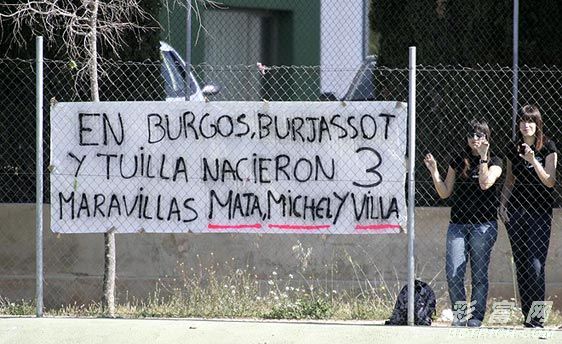 EN BURGOS, BURJASSOT
Y TUILLA NACIERON 3
MARAVILLAS MATA, MICHEL Y VILLA
彩富网